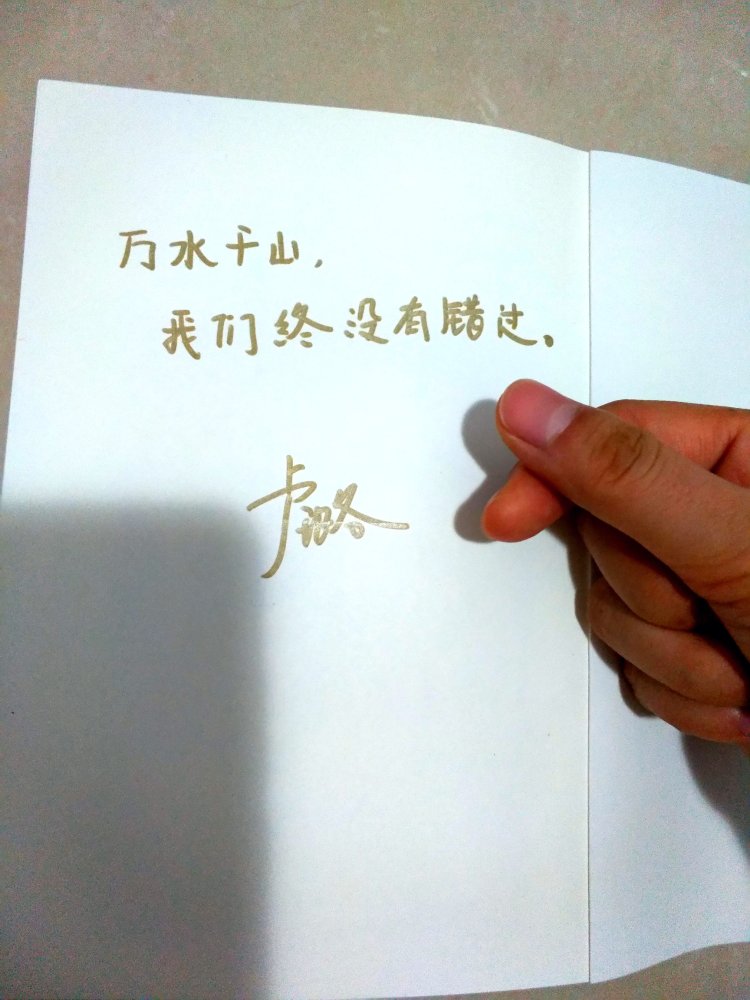 万水千山,
我们终没有错过。